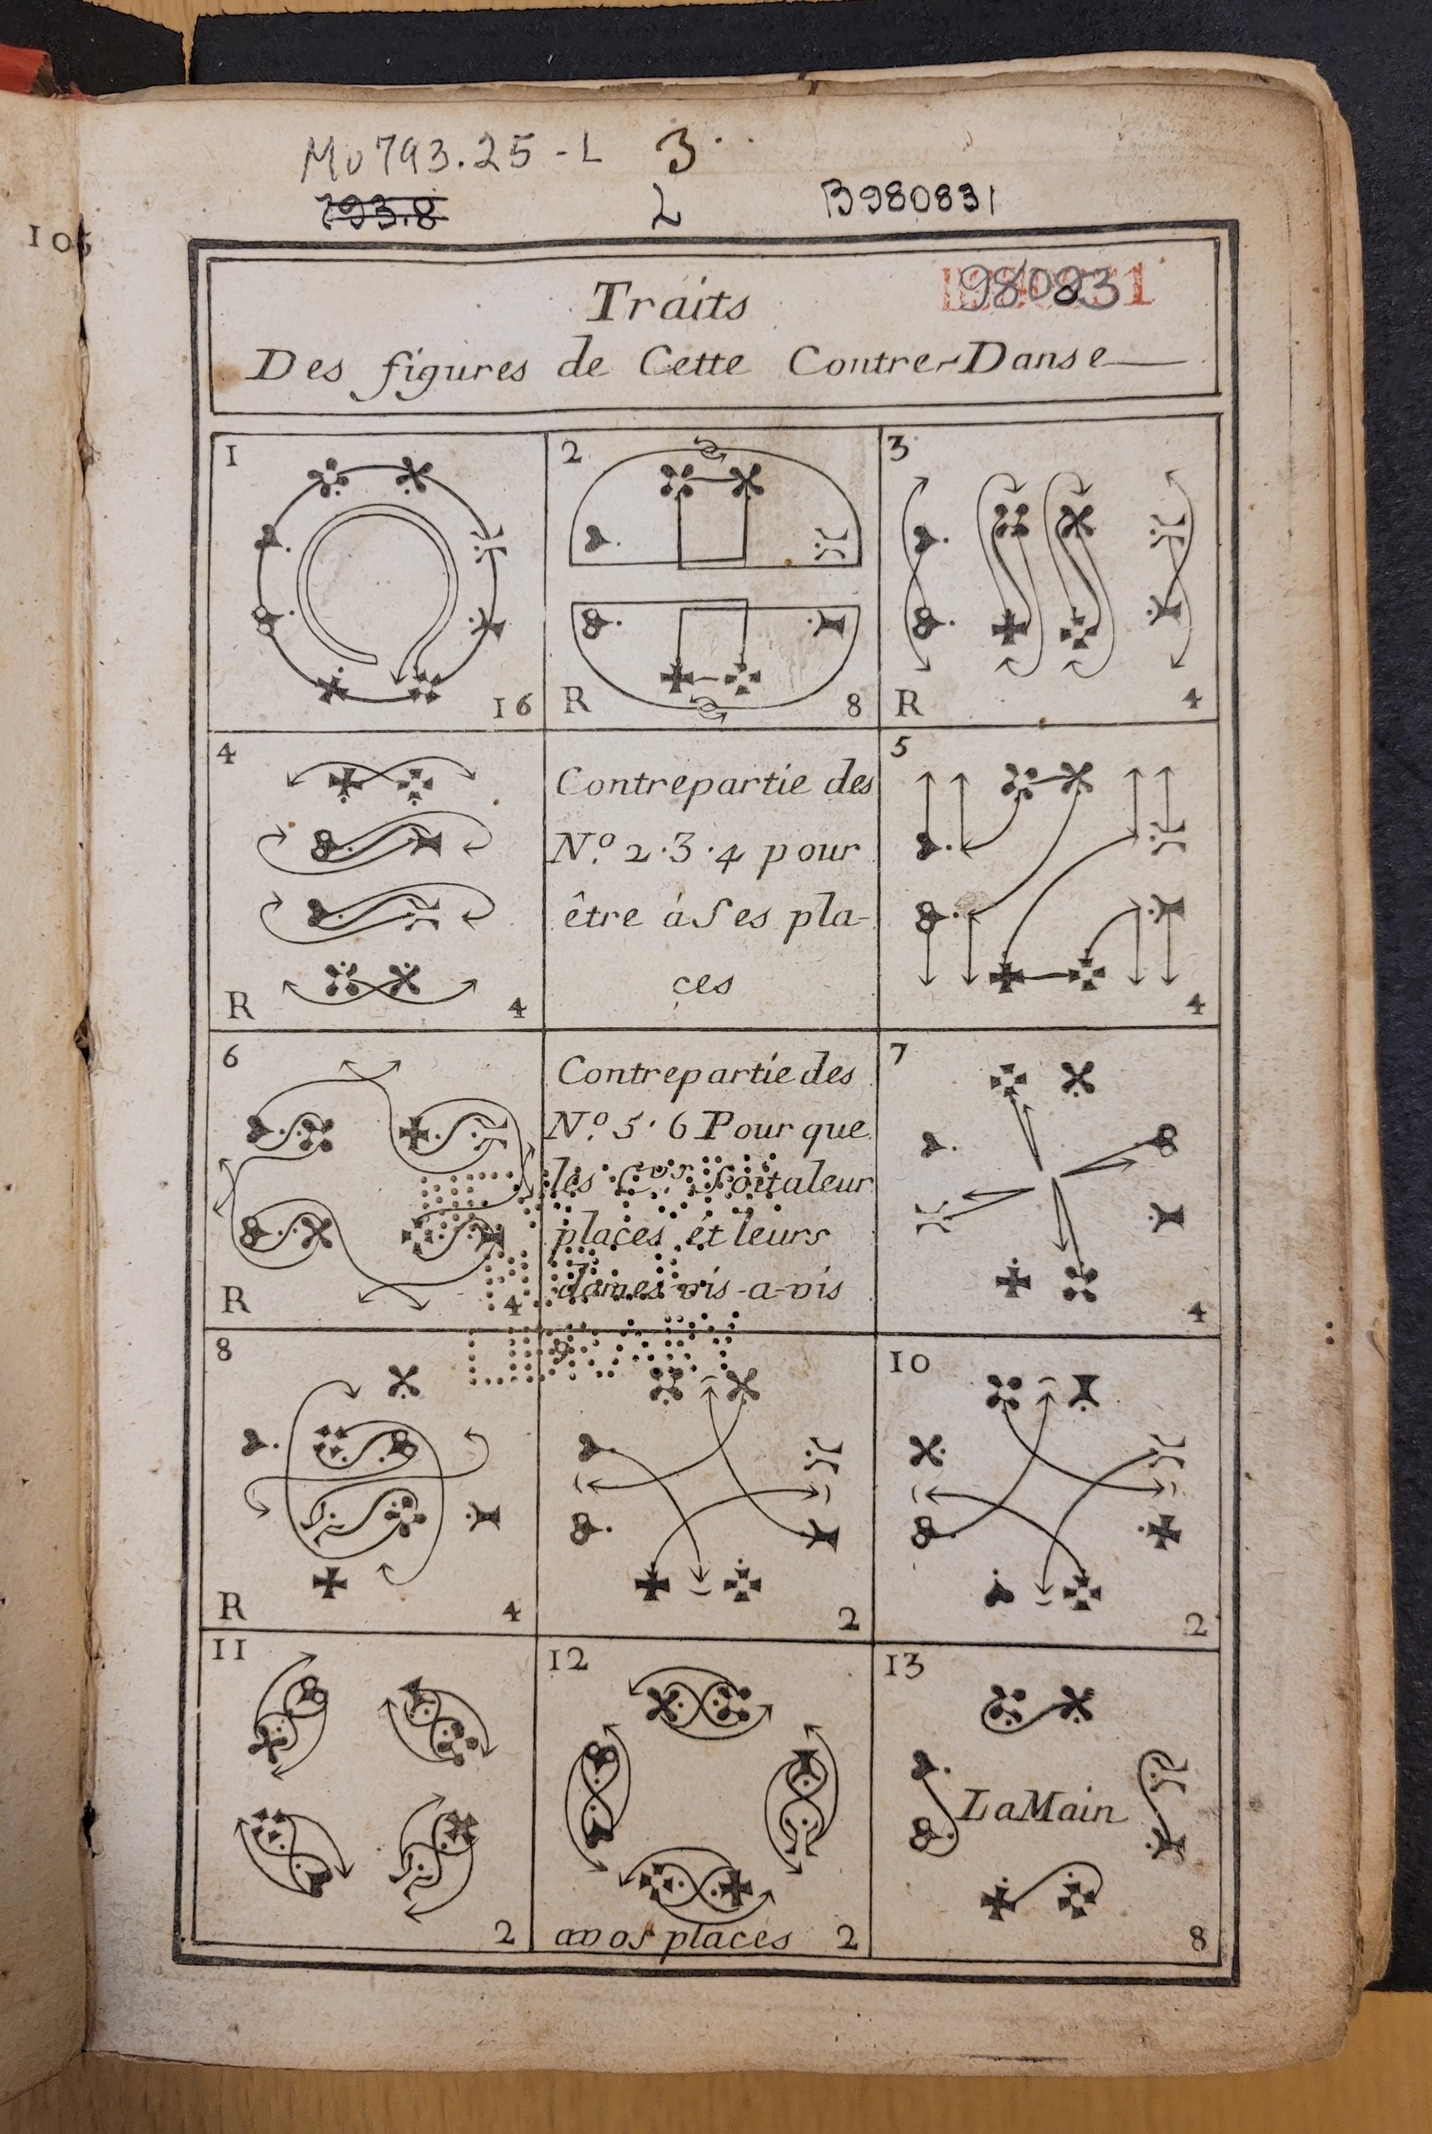 Mu793.25-L 3
793.8 L B980831
105
980831
Traits
Des figures de Cette Contre-Danse
1
16
2
R 8
3
R 4
4
R 4
Contrepartie des
N.º 2.3.4 pour
être á Ses pla-
ces
5
4
6
R 4
Contrepartie des
N.º 5.6 Pour que
les C.ers Soit a leur
places et leurs
dames vis-a-vis
7
4
8
R 4
9
2
10
2
11
2
12
a vos places 2
13
La Main
8